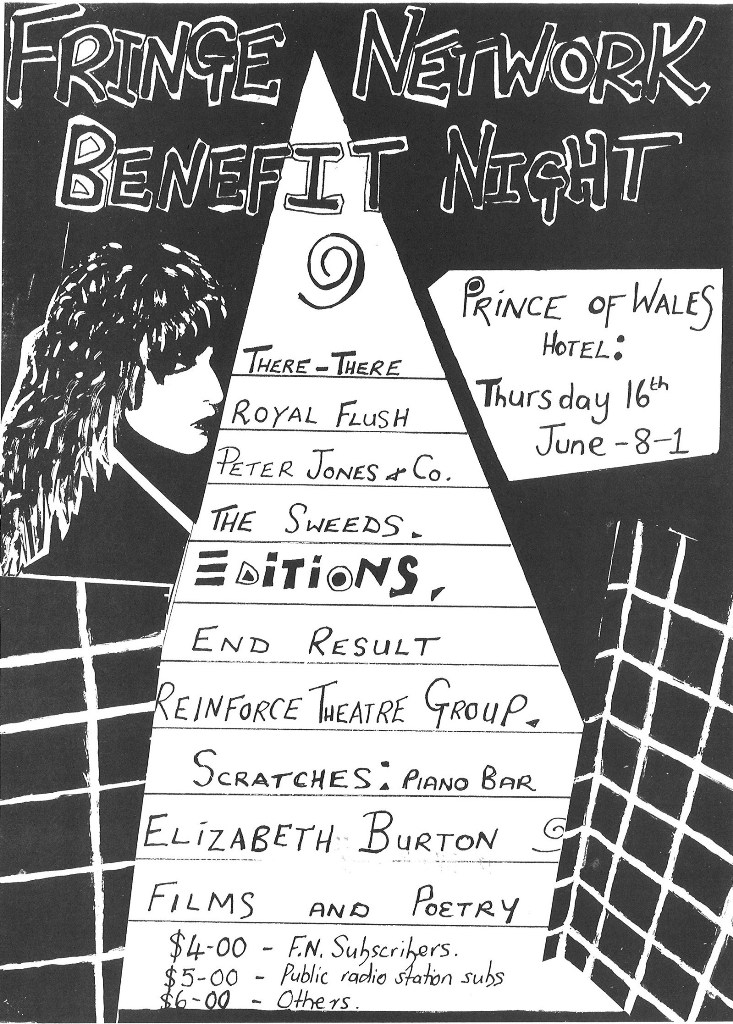 FRINGE NETWORK
BENEFIT NIGHT
PRINCE OF WALES
HOTEL:
Thursday 16th
June - 8-1
THERE - THERE
ROYAL FLUSH
PETER JONES & CO.
THE SWEEDS.
EDITIONS,
END RESULT
REINFORCE THEATRE GROUP.
SCRATCHES: PIANO BAR
ELIZABETH BURTON
FILMS AND POETRY
$4-00 - F.N. Subscribers.
$5-00 - Public radio station subs
$6-00 - Others.